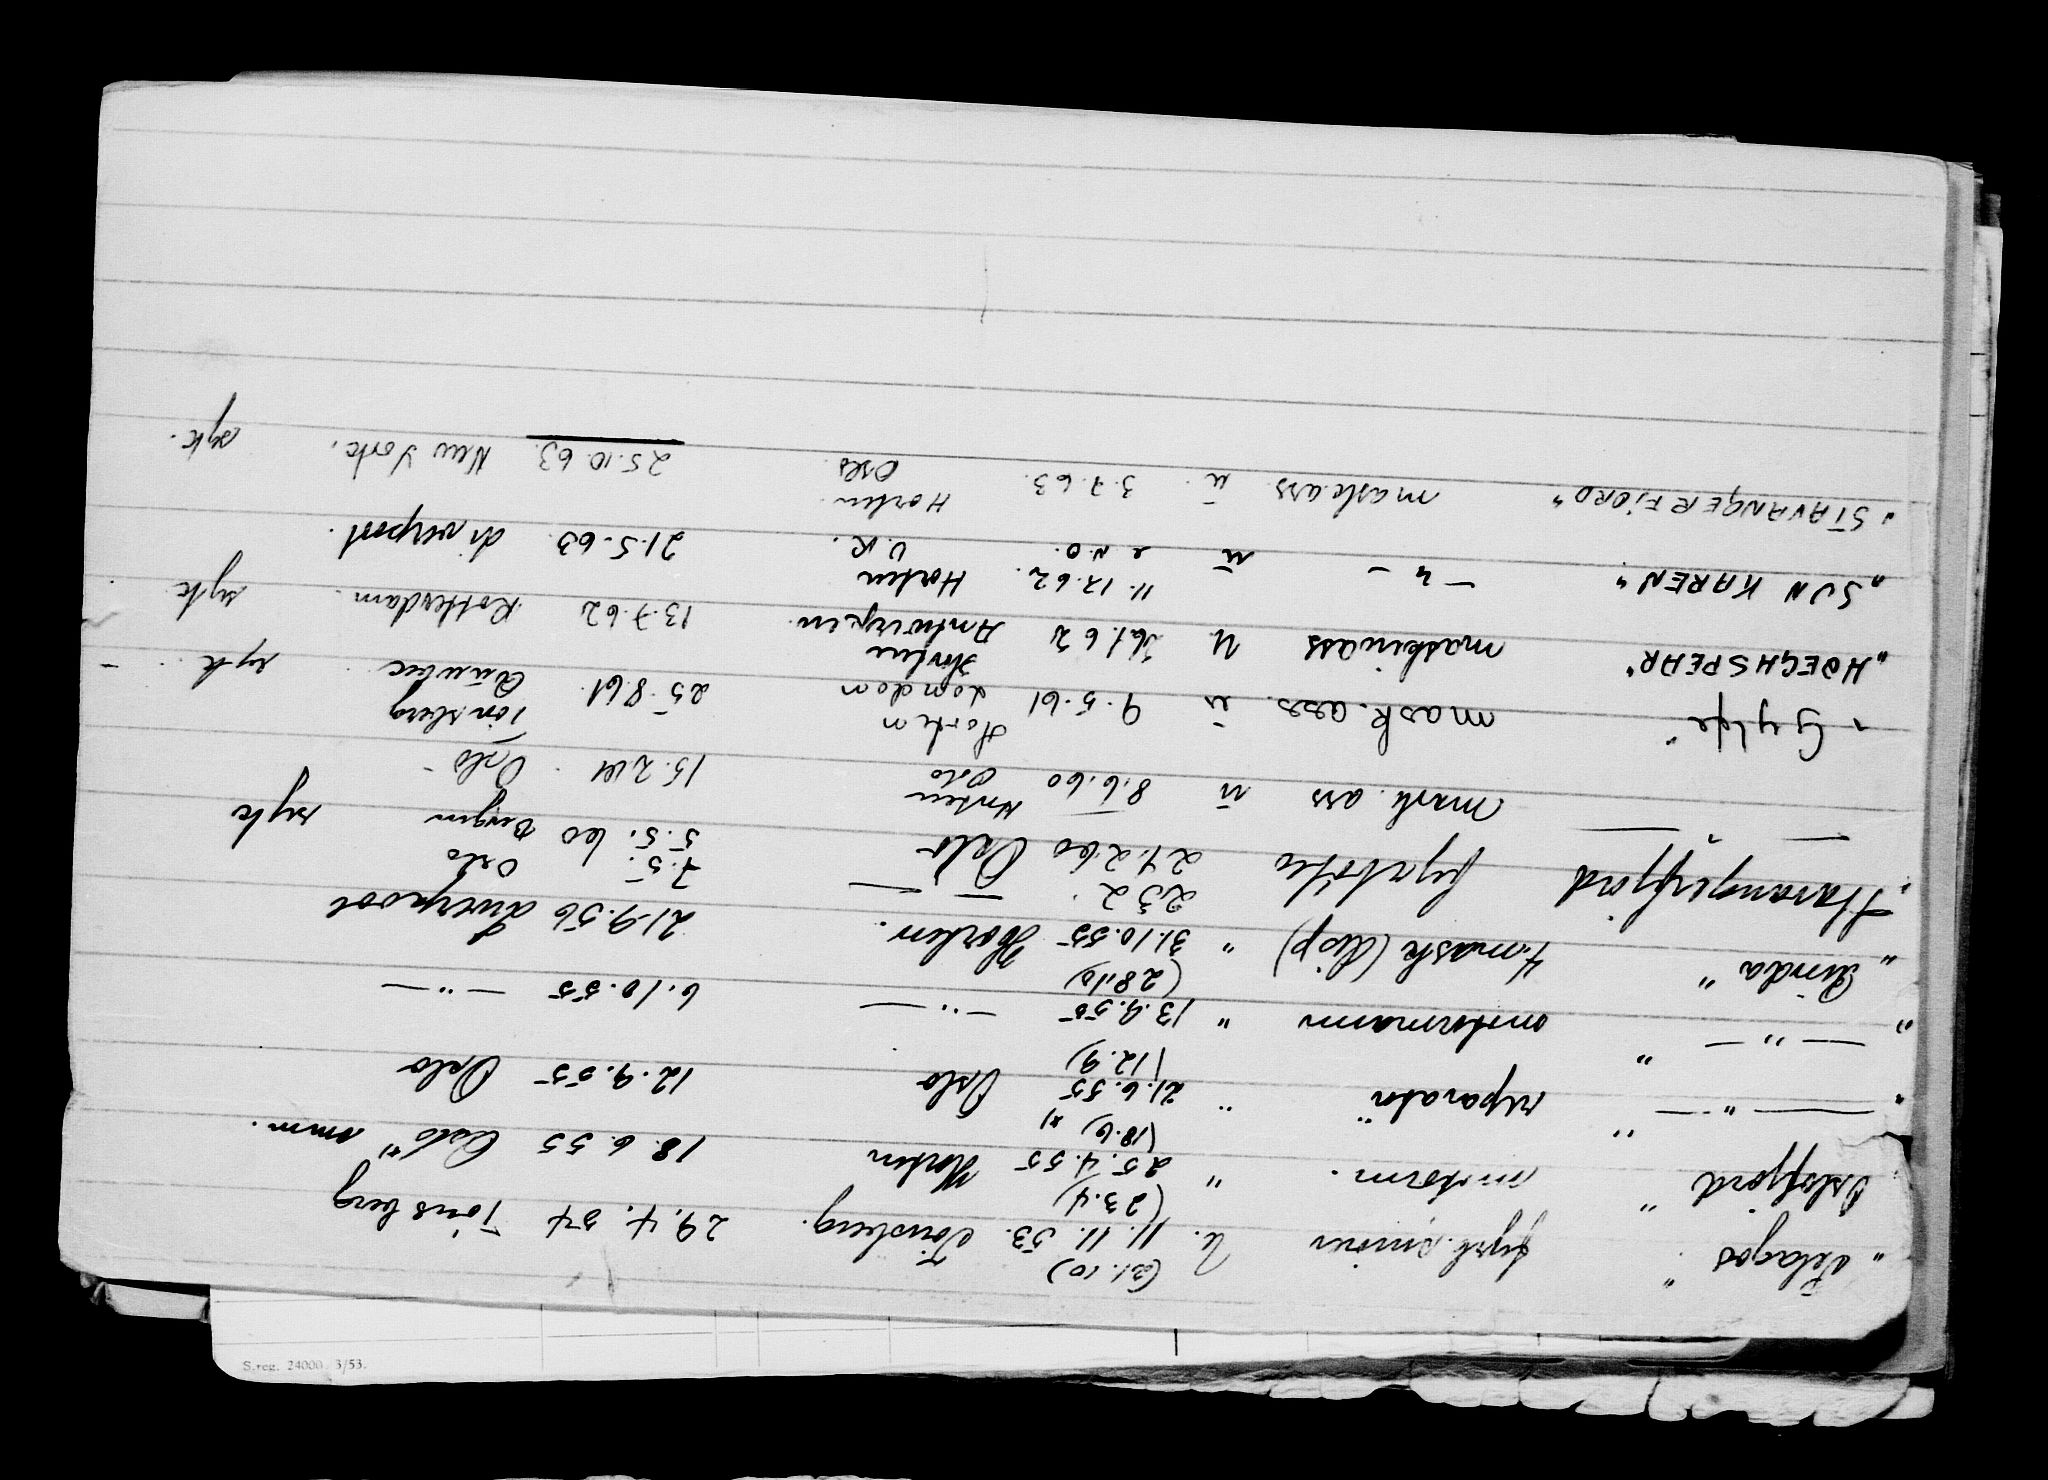 "Pelagos" fyrb. U. (21.10) 11.11.53. Tönsberg. 29.4.54 Tönsberg
(23.4)
Oslofjord " motorm. " 25.4.55 Horten 18.6.55 Oslo x) mm.
(18.6) x)
" — " — " reparatör " 21.6.55 Oslo 12.9.55 Oslo
(12.9)
" — " — " motormann " 13.9.55 — " — 6.10.55 — " —
(28.10)
" Linda " 4. mask (disp) " 31.10.55 Horten. 21.9.56 Liverpool
23.2. — — 7.5. Oslo
"Stavangerfjord fyrböter 24.2.60 Oslo 5.5.60 Bergen syk
Horten
— " — mask. ass ū 8.6.60 Oslo 15.2.61 Oslo -
Horten Tönsberg
"Gylfe" mask. ass. ū 9.5.61 London 25.8.61. Quebec syk -
Horten
"HØEGH SPEAR" maskinass U 61.62 Antwerpen. 13.7.62 Rotterdam. syk
"SUN KAREN" — " — ū 11.12.62. Horten
e N.O. U.K. 21.5.63. Liverpool.
Horten
"STAVANGERFJORD" mask ass. ū. 3.7.63. Oslo. 25.10.63. New York. syk.
S.reg. 24000. 3/53.